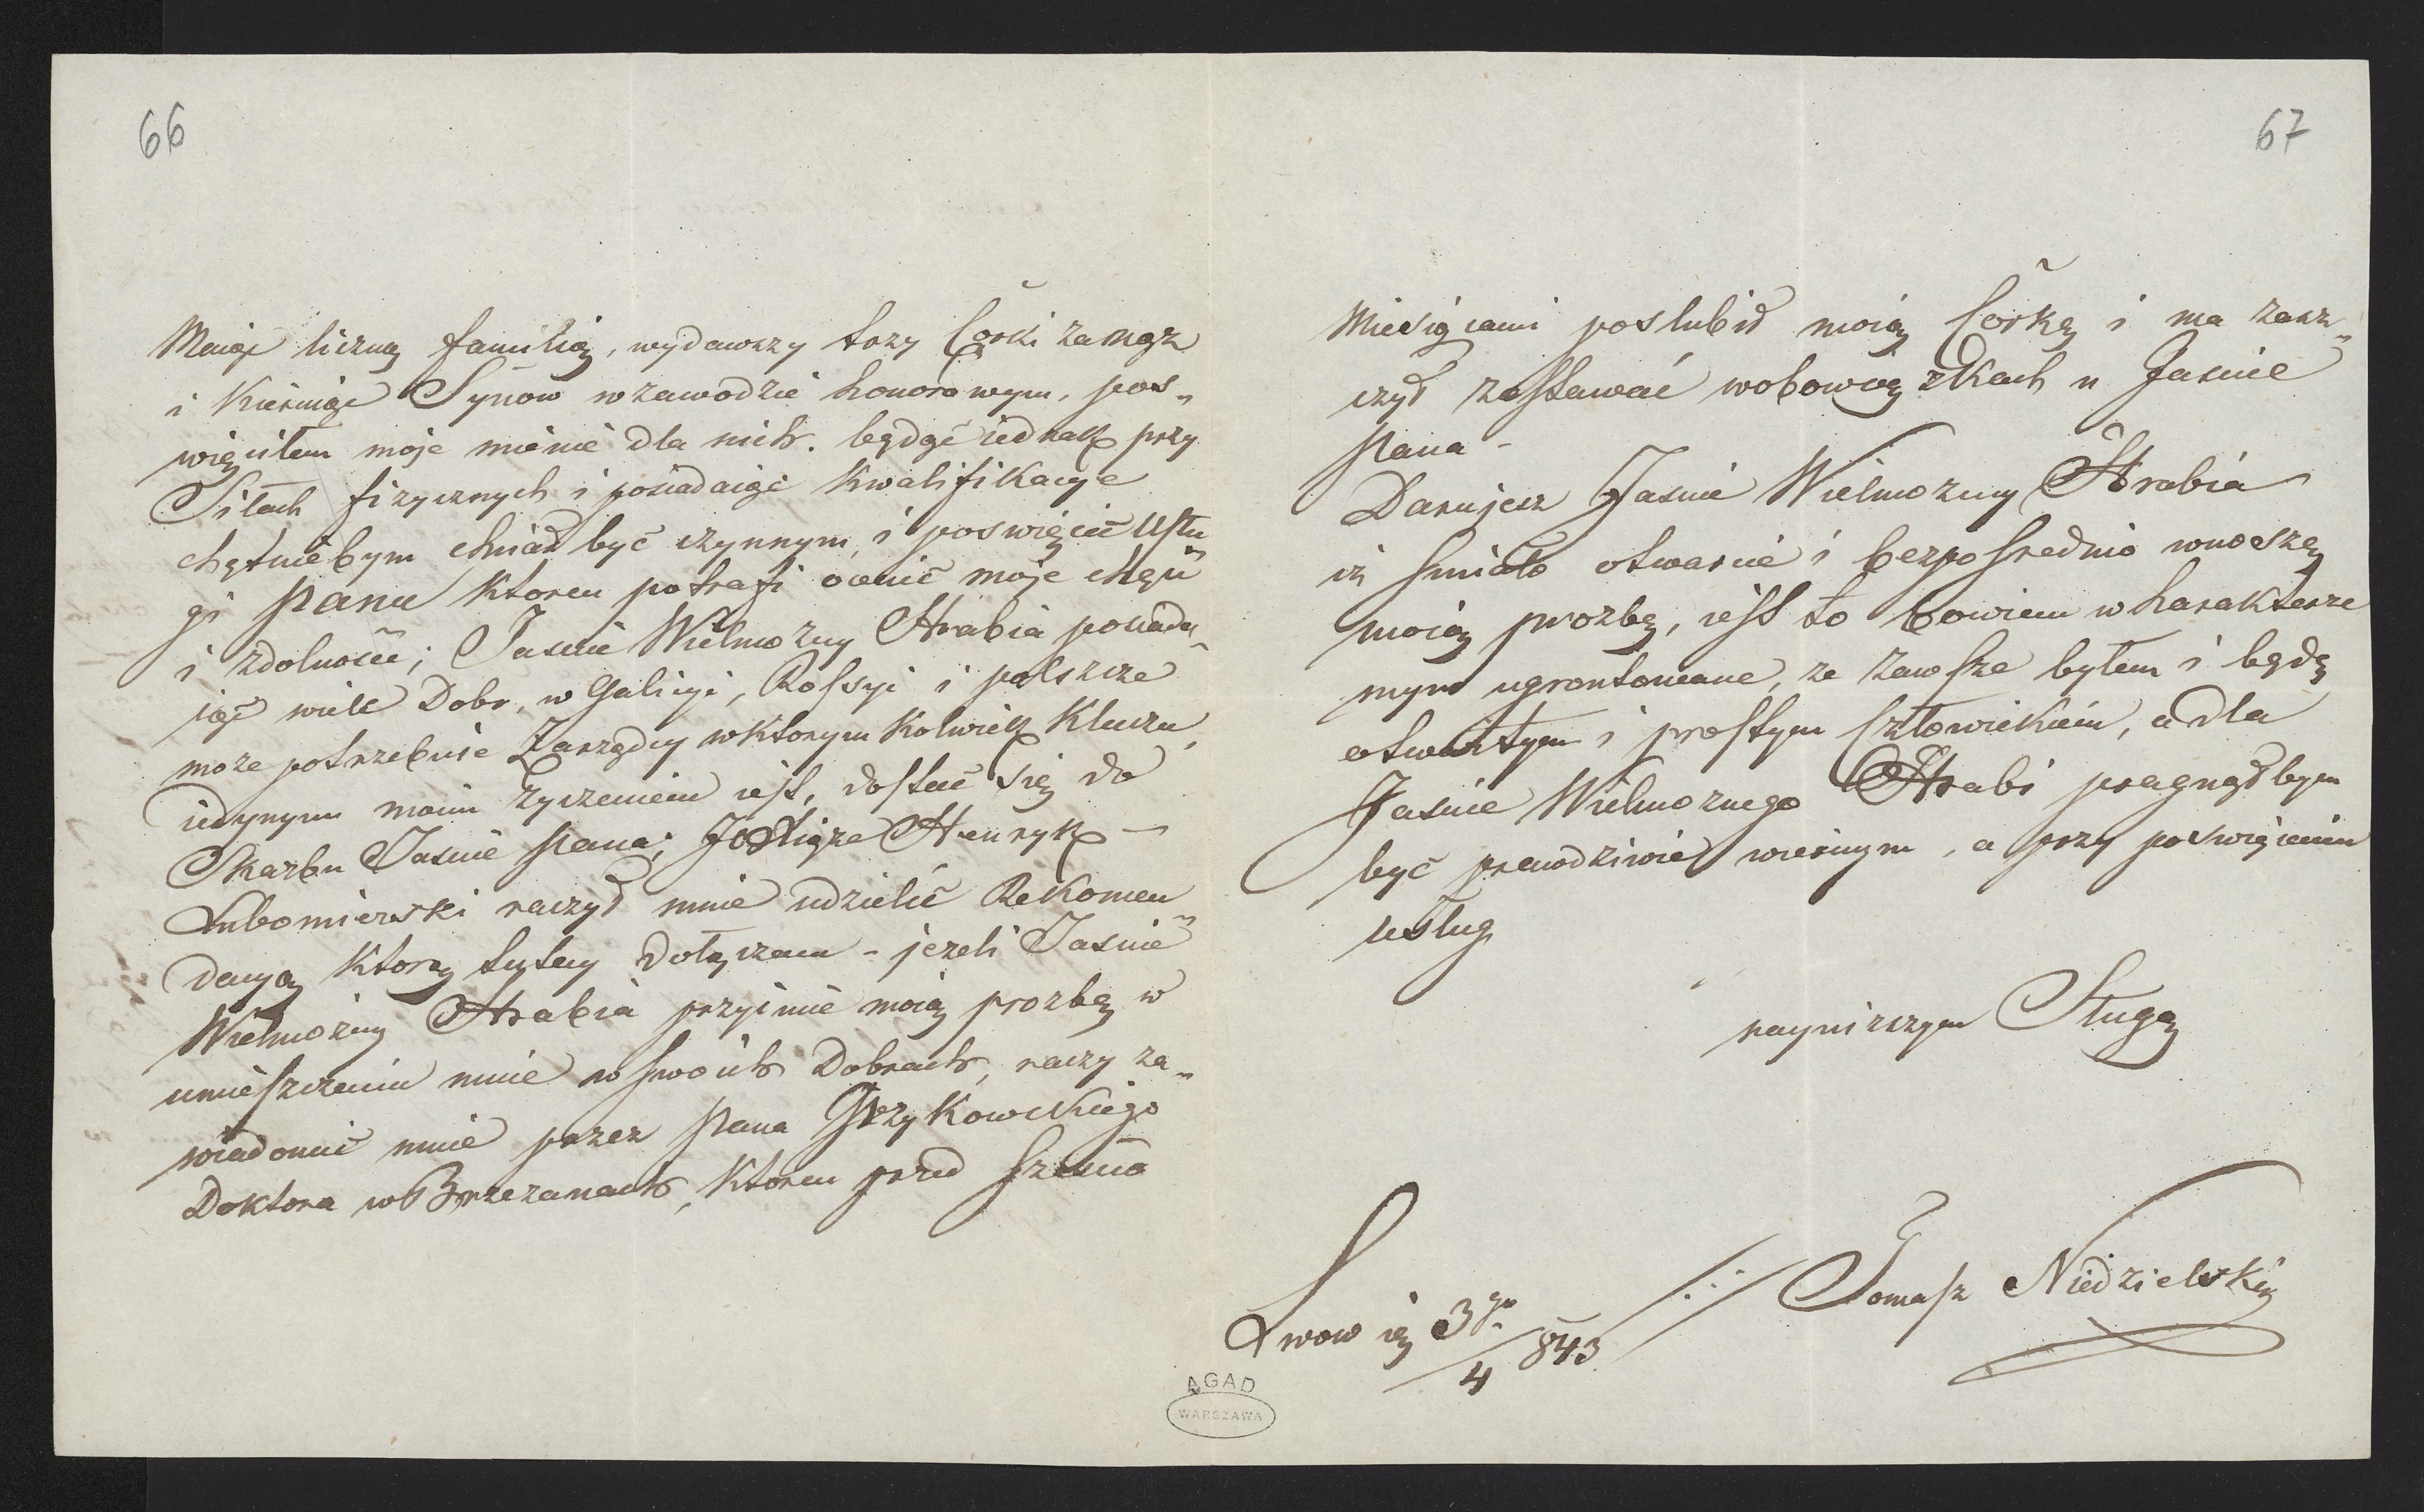 66
Maiąc liczną familią, wydawszy trzy Corki zamąz
i kieruiąc Synow w zawodzie honorowym, pos„
więcitem moje mienie dla nich. będąc iednak przy
Siłach fizycznych i posiadaiąc kwalifikacye
chętniebym chciał być czynnym, i poswięcić Usłu
gi Panu ktoren potrafi ocenić moje chęci
i zdolnoście; Jasnie Wielmozny Hrabia posiada„
iąc wiele Dobr, w Galicyi, Rossyi i polszcze
moze potrzebuie Zarządcy w ktorym kolwiek kluczu,
iedynym moim zyczeniem iest, dostać się do
Skarbu Jasnie Pana; JO Xiąze Henryk –
Lubomierski raczył mnie udzielić Rekomen
dacyą ktorą tutey dołączam – jezeli Jasnie
Wielmozny Hrabia przyimie moią prozbę w
umieszczeniu mnie w swoich Dobrach, raczy za„
wiadomić mnie przez Pana Strzykowskiego
Doktora w Brzezanach, ktoren przed szescio
67
Miesiącami poslubił moią Corkę i ma zasz„
czyt zostawać w obowiązkach u Jasnie
Pana –
Darujesz Jasnie Wielmozny Hrabia
iz smiało otwarcie i bezposrednio wnoszę
moią prozbę, iest to bowiem w harakterze
mym ugrontowane, ze zawsze byłem i będę
otwartym i prostym Człowiekiem, a dla
Jasnie Wielmoznego Hrabi pragnąłbym
być prawdziwie wiernym, a przy poswięceniu
usług
nayniszszym Sługą
Tomasz Niedzielski
Lwow 3go/4 843
AGAD
WARSZAWA